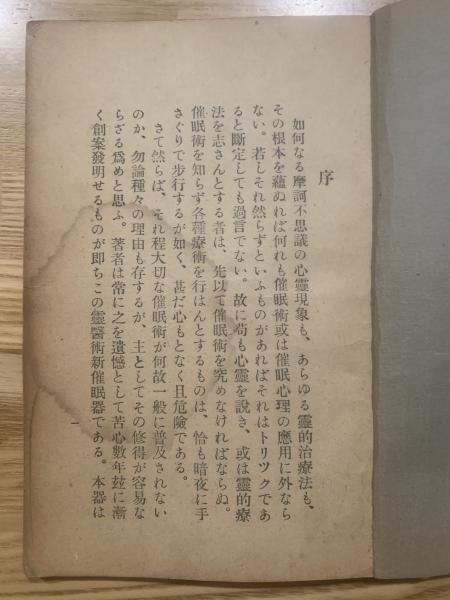 序
如何なる摩訶不思議の心靈現象も、あらゆる靈的治療法も、
その根本を蘊ぬれば何れも催眠術或は催眠心理の應用に外なら
ない。若しそれ然らずといふものがあればそれはトリツクであ
ると斷定しても過言でない。故に苟も心靈を説き、或は靈的療
法を志さんとする者は、先以て催眠術を究めなければならぬ。
催眠術を知らず各種療術を行はんとするものは、恰も暗夜に手
さぐりで步行するが如く、甚だ心もとなく且危險である。
さて然らば、それ程大切な催眠術が何故一般に普及されない
のか、勿論種々の理由も存するが、主としてその修得が容易な
らざる爲めと思ふ。著者は常に之を遺憾として苦心數年玆に漸
く創案發明せるものが即ちこの靈醫術新催眠器である。本器は
一